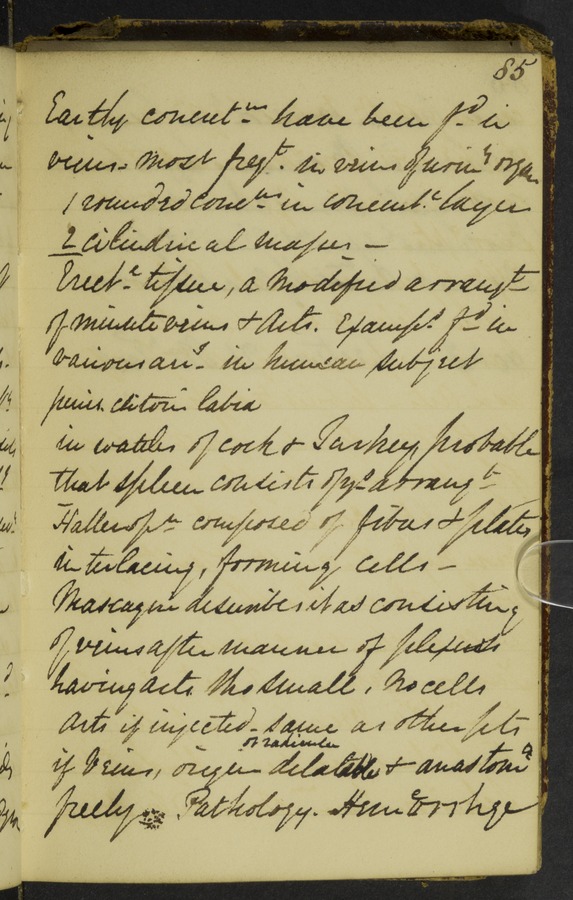 85
Earthy concrt.ns have been fd in
veins - most freqt. in veins of urin.y organ
1 rounded conc.ns in concent.c layer
2 cilindrical masses -
Erect.e tissue, a modified arrangt
of minute veins & Arts. Exampls fd in
various ani.s in human subject
penis clitoris labia
in wattles of cock & Turkey probable
that spleen consists of ys arrangt
Haller opn composed of fibres & plates
interlacing, forming cells -
Mascagni describes it as consisting
of veins after manner of plexus
having arts tho small, No cells
Arts if injected - same as other pts
if Veins, origin or radicules dilatable & anastom
freely Pathology. Hemorrhge